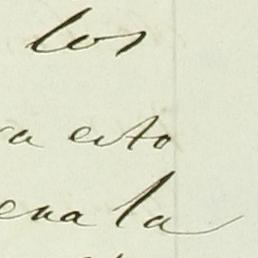 los
ra esto
ena la